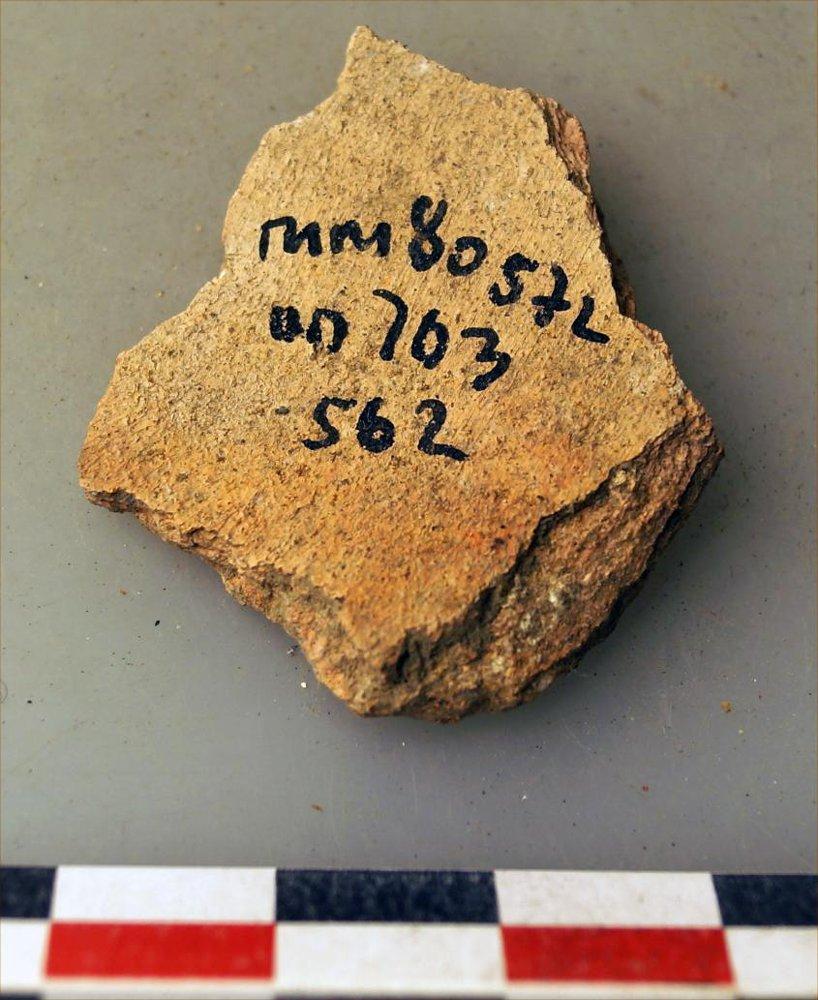 mm80572
an 703
562